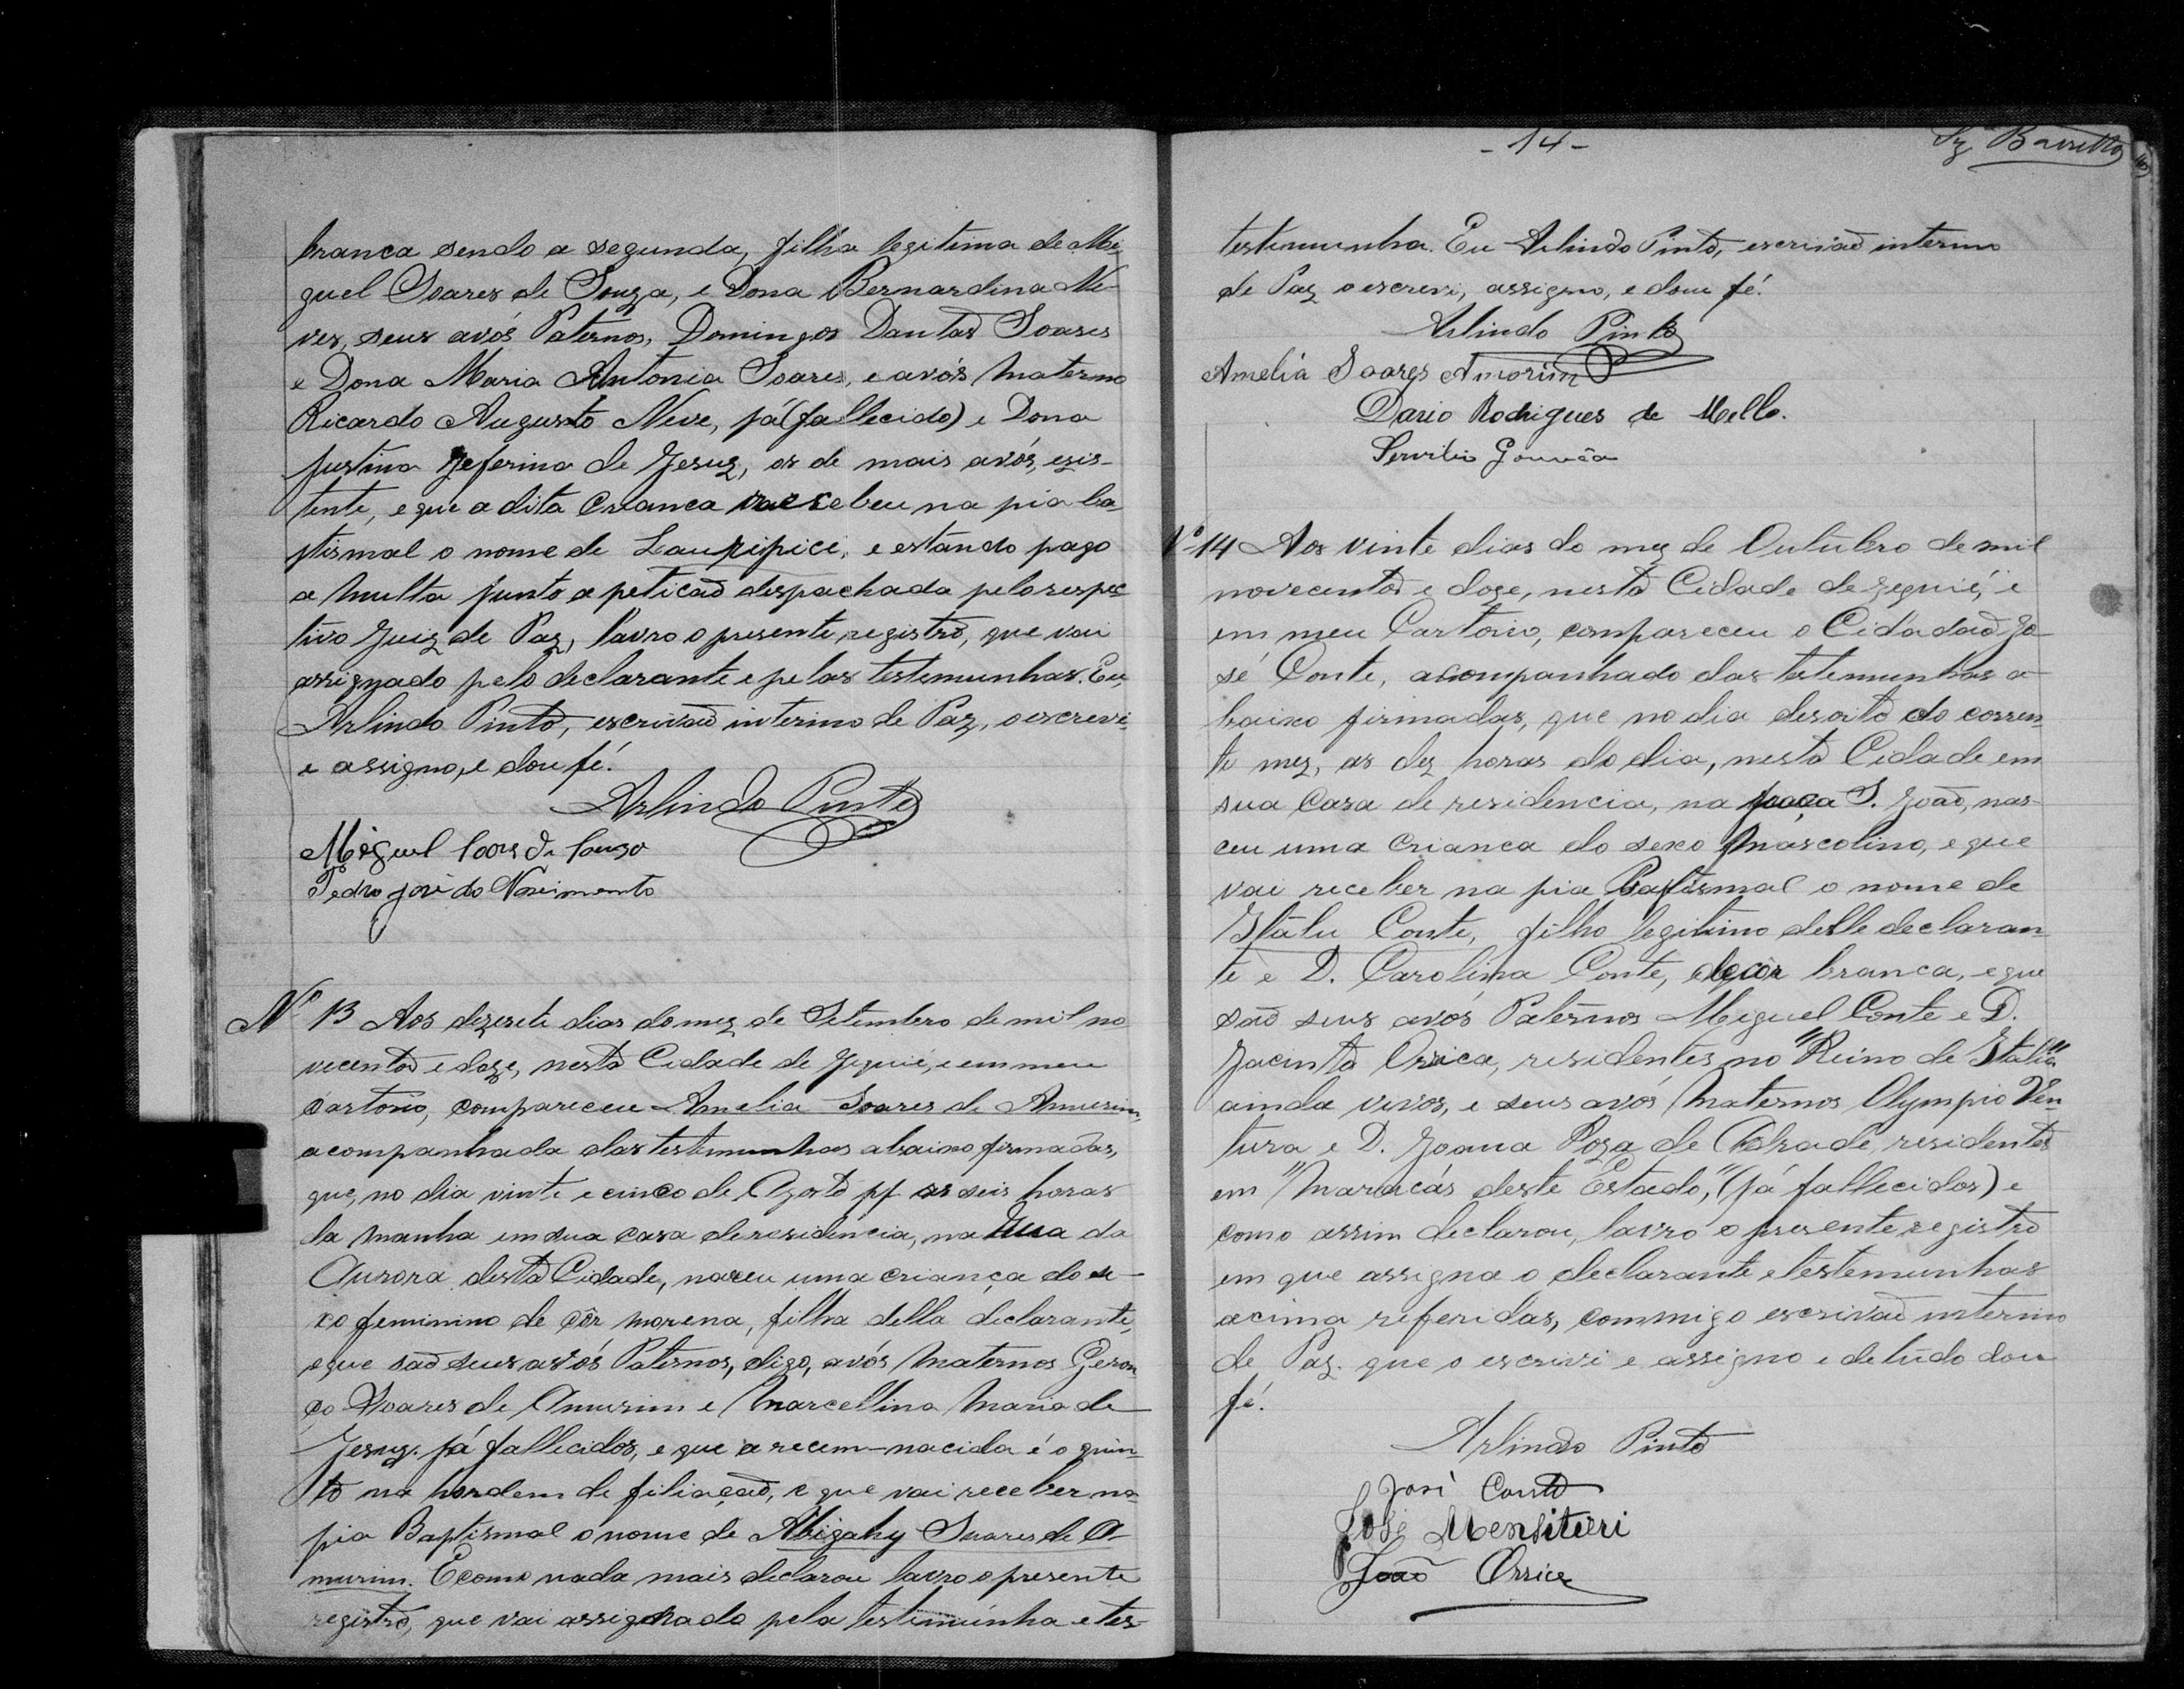 branca sendo a segunda, filha legitima de Mi-
guel Soares de Souza, e Dona Bernardina Ne-
ves, seus avós Paternos, Domingos Dantas Soares
e Dona Maria Antonia Soares, e avós Materno
Ricardo Augusto Neve, já (fallecido) e Dona
Justina Zeferina de Jesus, os de mais avós, exis-
tente, e que a dita Creanca recebeu na pia ba-
ptismal o nome de e estando pago
a multa junto a peticaõ despachada pelo respec
tivo Juiz de Paz, lavro o presente registro, que vai
assignado pelo declarante e pelas testemunhas. Eu,
Arlindo Pinto, escrivaõ interino de Paz, o escrevi
e assigno, e dou fé.
Arlindo Pinto
Miguel Soares de Souza
Pedro José do Nascimento
Nº 13 Aos dezesete dias do mez de Setembro de mil no
vecentos e doze, nesta Cidade de Jequié, e em meu
Cartorio, compareceu Amelia Soares de Amurim,
acompanhada das testemunhas abaixo firmadas,
que, no dia vinte e cinco de Agosto pf as seis horas
da manha em sua casa de residencia, na Rua da
Aurora desta Cidade, naceu uma criança do se-
xo feminino de côr morena, filha della declarante,
e que saõ seus avós Paternos, digo, avós Maternos
Soares de Amurim e Marcellina Maria de
Jesus. já fallecidos, e que a recem-nacida é o quin-
to na hordem de filiaçaõ, e que vai receber na
pia Baptismal o nome de Abigahy Suares de A-
murim. E como nada mais declarou lavro o presente
registro, que vai assignado pela testemunha e tes-
- 14 -
Barretto
testemunha. Eu Arlindo Pinto, escrivaõ interino
de Paz o escrevi, assigno, e dou fé.
Arlindo Pinto
Amelia Soares Amorim
Dario Rodrigues de Mello.
Servilio Gouvêa
Nº 14 Aos vinte dias do mez de Outubro de mil
novecentos e doze, nesta Cidade de Jequié, e
em meu Cartorio, compareceu o Cidadaõ Jo-
sé Conte, acompanhado das testemunhas a-
baixo firmadas, que no dia desoito do corren-
te mez, as dez horas do dia, nesta Cidade em
sua casa de residencia, na praça S. Joaõ, nas-
ceu uma crianca do sexo mascolino, e que
vai receber na pia Baptismal o nome de
Itálu Conte, filho legitimo delle declaran
te e D. Carolina Conte, de côr branca, e que
saõ seus avós Paternos Miguel Conte e D.
Jacinta Orrica, residentes no "Reino de Italia"
ainda vivos, e seus avós Maternos Olympio Ven-
tura e D. Joana Roza de Andrade, residentes
em "Maracás deste Estado," (já fallecidos) e
como assim declarou, lavro o presente registro
em que assigna o declarante e testemunhas
acima referidas, commigo escrivaõ interino
de Paz. que o escrivi e assigno e de tudo dou
fé.
Arlindo Pinto
José Conte
José Mensitieri
Joaõ Orrico